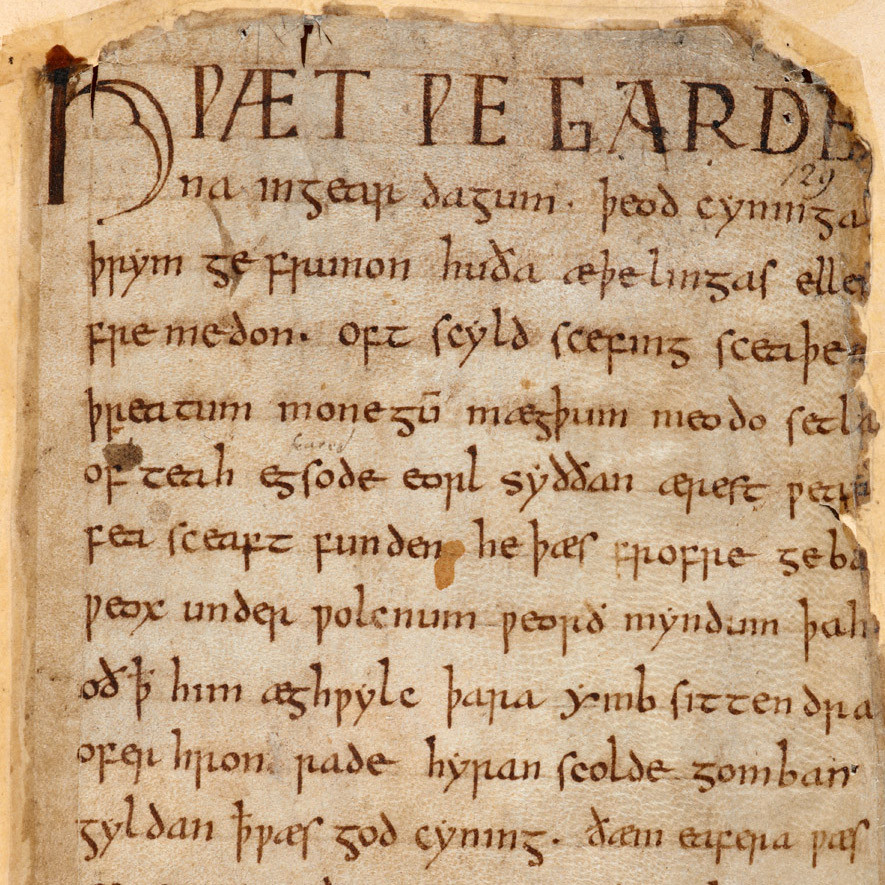 HǷÆT ǷE GARDE
na ingear dagum. þeod cyninga
þrym ge frunon huða æþelingas elle
fremedon. oft scyld scefing sceaþe
þreatum monegū mægþum meodo setla
of teah egsode eorl syððan ærest ƿear
fea sceaft funden he þæs frofre geba
ƿeox under ƿolcnum ƿeorð myndum þah
oð ꝥ him æghƿylc þara ymb sittendra
ofer hron rade hyran scolde gomban
gyldan ꝥƿæs god cyning. ðæm eafera ƿæs